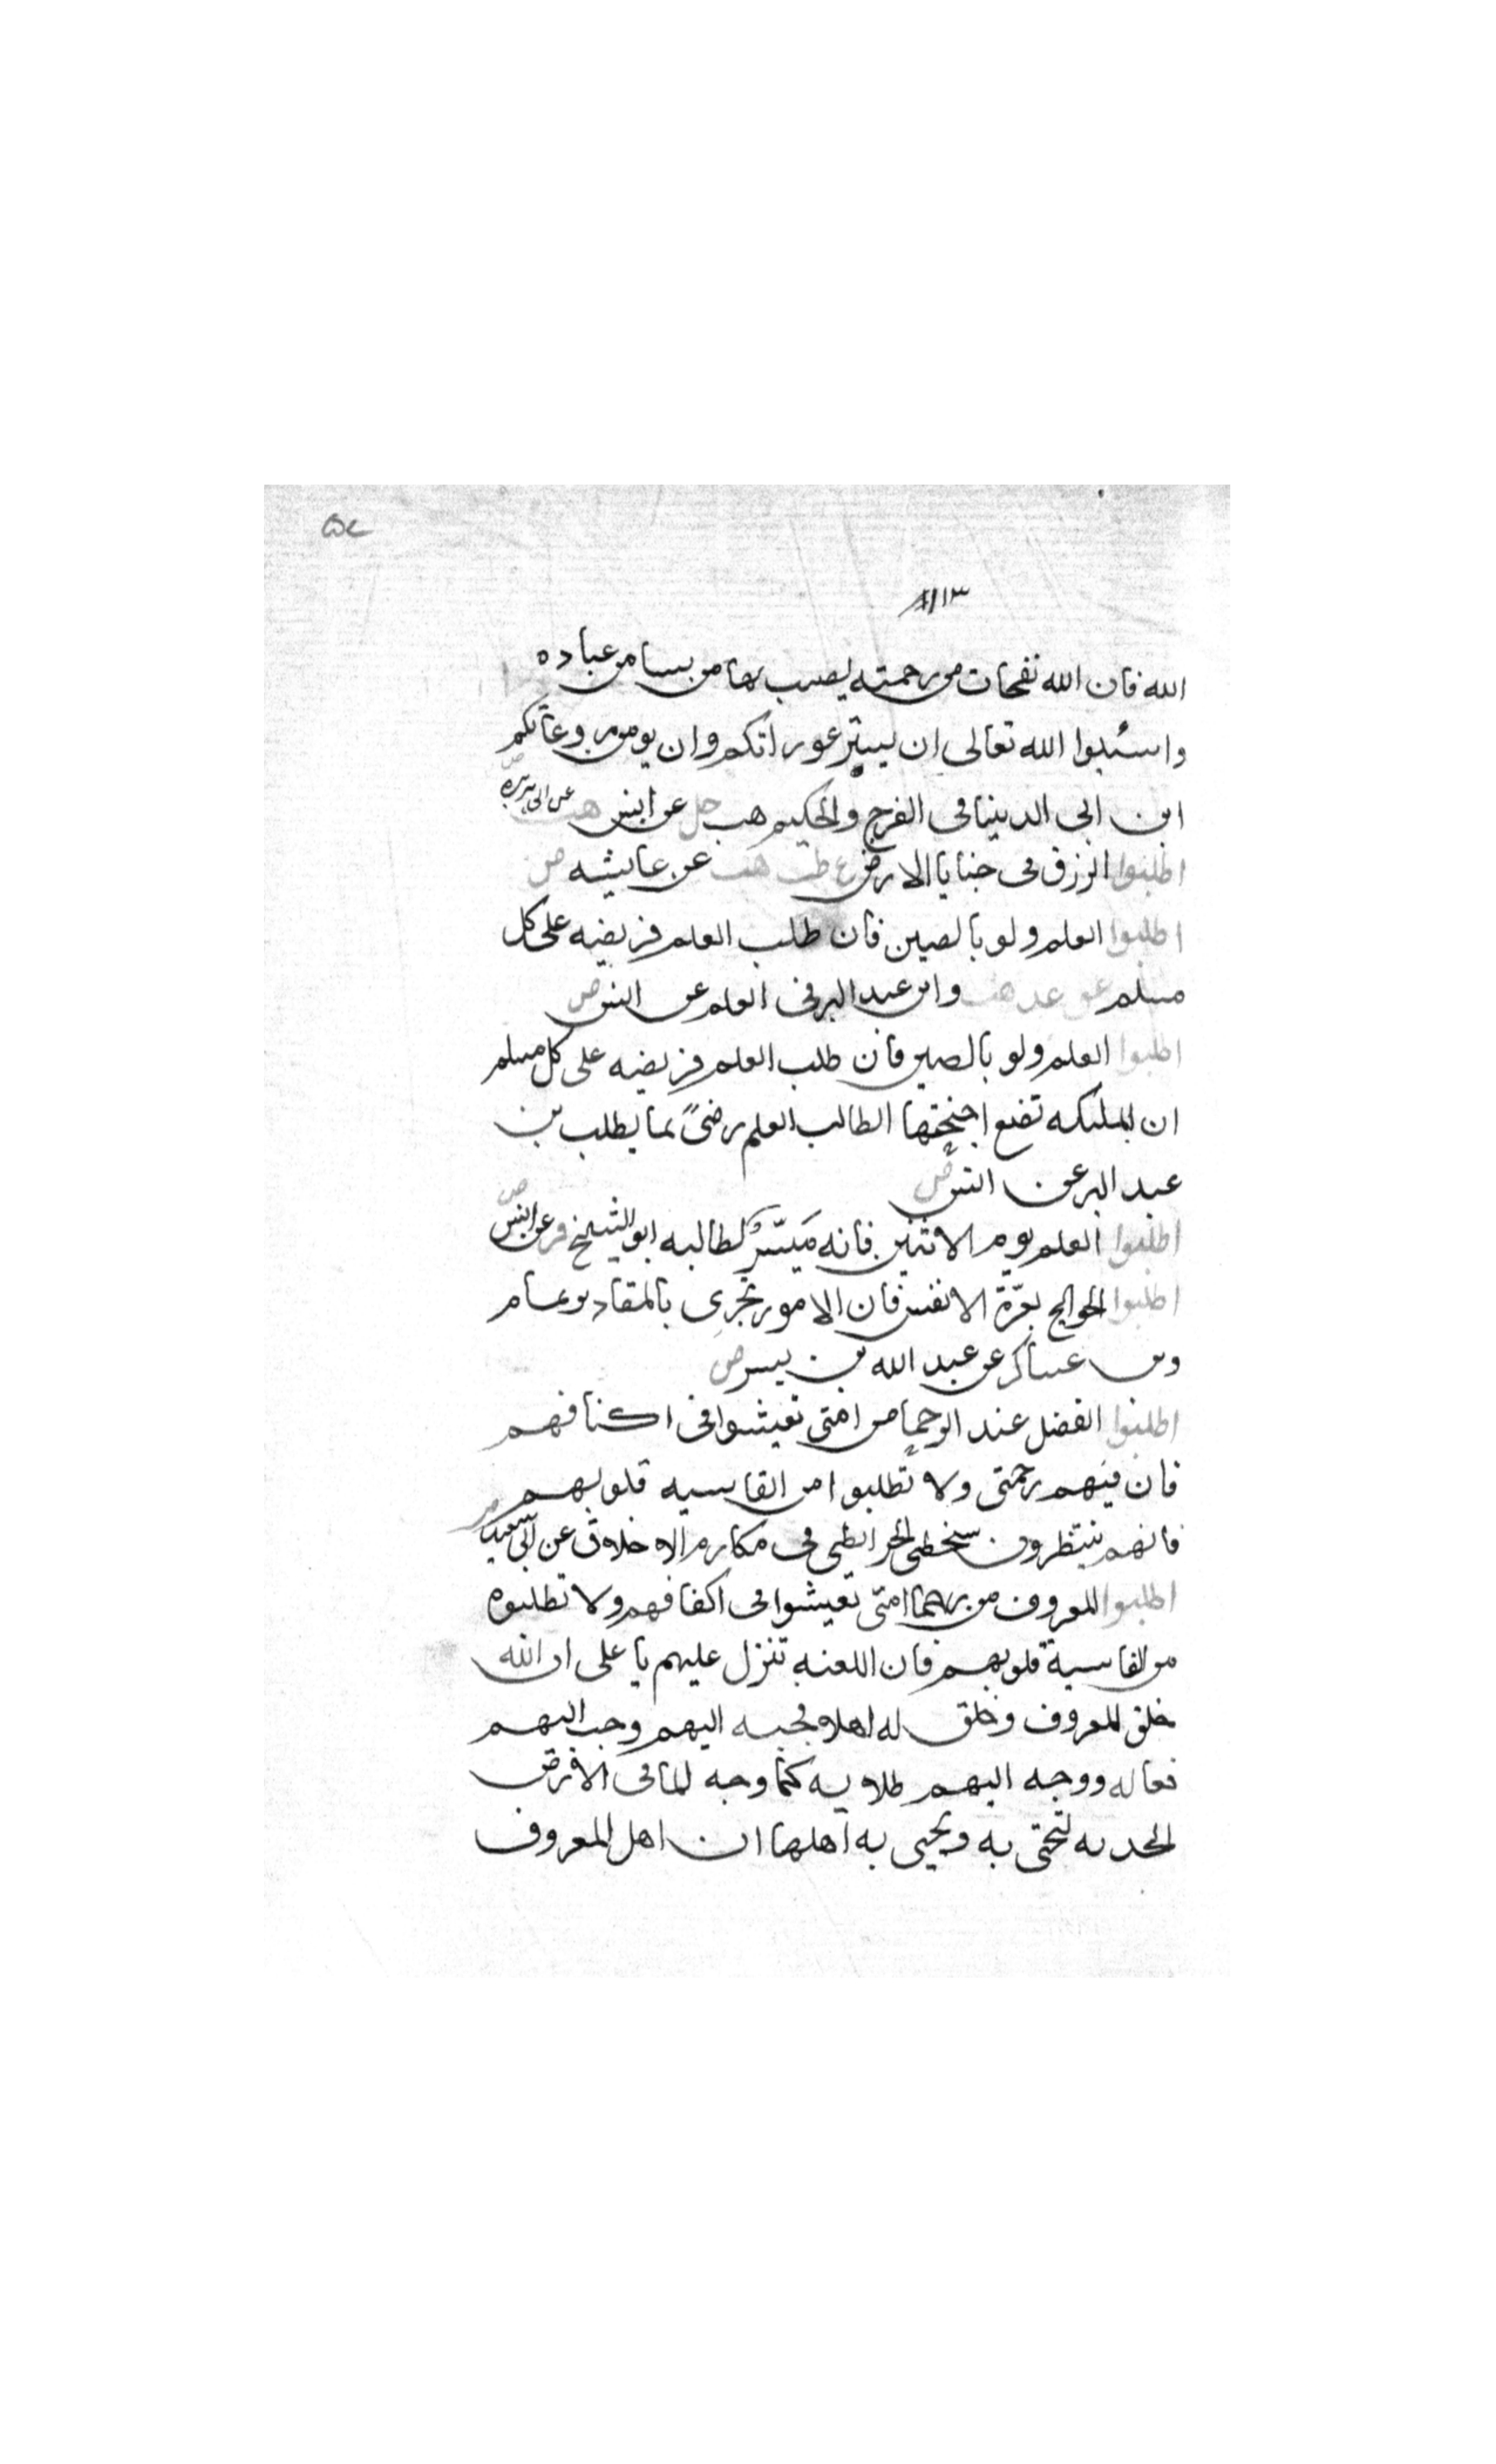 الله فان الله نفحات من رحمته يصيب بها من يسا من عباده
واسئلوا الله تعالى ان يستر عوراتكم وان يومن روعاتكم
ابن ابى الدينا فى الفرج والحكيم هب حل عن انس هب عن ابى هريرة
اطلبوا الرزق فى خبايا الارض ع طب هب عن عايشه ض
اطلبوا العلم ولو بالصين فان طلب العلم فريضه على كل
مسلم عق عد هب وابن عبد البر فى العلم عن انس ض
اطلبوا العلم ولو بالصين فان طلب العلم فريضه على كل مسلم
ان الملئكه تضع اجنحتها الطالب العلم رضىً بما يطلب بن
عبد البر عن انس ض
اطلبوا العلم يوم الاثنين فانه مَيسّرٌ لطالبه ابو الشيخ فر عن انس ض
اطلبوا الحوايج بعزّة الانفس فان الامور تجرى بالمقادير تمام
وبن عساكر عن عبد الله بن بسر ض
اطلبوا الفضل عند الرحما من امتى تعيشوا فى اكنافهم
فان فيهم رحمتى ولا تطلبوا من القاسيه قلوبهم
فانهم ينتظرون سخطى الخرايطى فى مكارم الاخلاق عن ابى سعيد ض
اطلبوا المعروف من رحما امتى تعيشوا فى اكنافهم ولا تطلبوه
من القاسية قلوبهم فان اللعنه تنزل عليهم يا على ان الله
خلق المعروف وخلق له اهلا فحببه اليهم وحبب اليهم
فعاله ووجه اليهم طلابه كما وجه الما فى الارض
الجدبه لتحيى به ويحيى به اهلها ان اهل المعروف